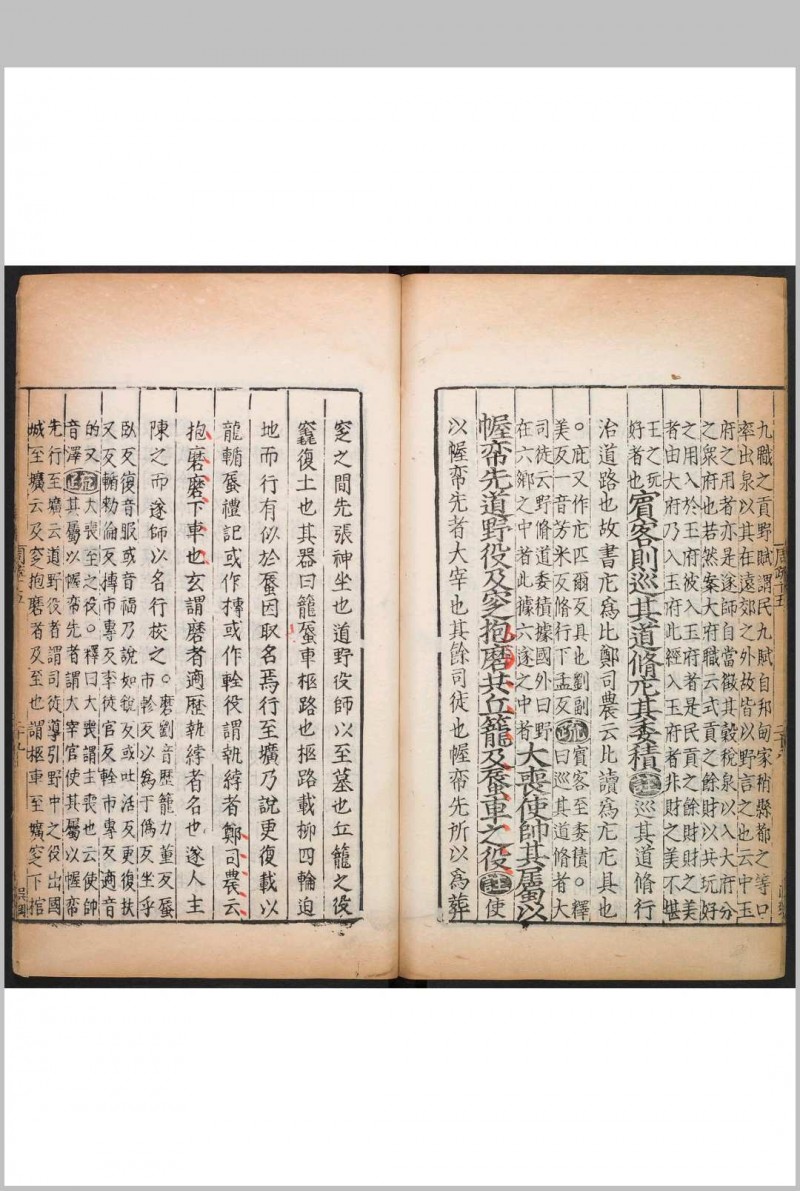 九職之貢野賦謂民九賦自邦甸家稍縣都之等口
率出泉以其在遠郊之外故皆以野言之也云中玉
府之用者亦是遂師自當徵其穀稅泉以入大府分
之衆府也若然案大府職云式貢之餘財以共玩好
之用入於玉府彼入玉府者是民貢之餘財財之美
者由大府乃入玉府此經入玉府者非財之美不堪
王之玩
好者也
賓客則巡其道脩庀其委積註巡其道脩行
治道路也故書庀爲比鄭司農云比讀爲庀庀具也
。庀又作庇匹爾反具也劉副
美反一音芳米反脩行下孟反
疏賓客至委積。釋
曰巡其道脩者大
司徒云野脩道委積據國外曰野
在六鄉之中者此據六遂之中者
大喪使帥其屬以
幄帟先道野役及窆抱磨共丘籠及蜃車之役註使
以幄帟先者大宰也其餘司徒也幄帟先所以爲葬
窆之間先張神坐也道野役師以至墓也丘籠之役
竁復土也其器曰籠蜃車柩路也柩路載柳四輪迫
地而行有似於蜃因取名焉行至壙乃說更復載以
龍輴蜃禮記或作槫或作輇役謂執綍者鄭司農云
抱磨磨下車也玄謂磨者適歷執綍者名也遂人主
陳之而遂師以名行挍之
。磨劉音歷籠力董反蜃
市軫反以爲于僞反坐乎
卧反復音服或音福乃說如銳反或吐活反更復扶
又反輴勑倫反槫市專反李徒官反輇市專反適音
的又
音澤
疏大喪至之役。釋曰大喪謂主喪也云使帥
其屬以幄帟先者謂大宰官使其屬以幄帟
先行至壙云道野役者謂司徒導引野中之役出國
城至壙云及窆抱磨者及至也謂柩車至壙窆下棺